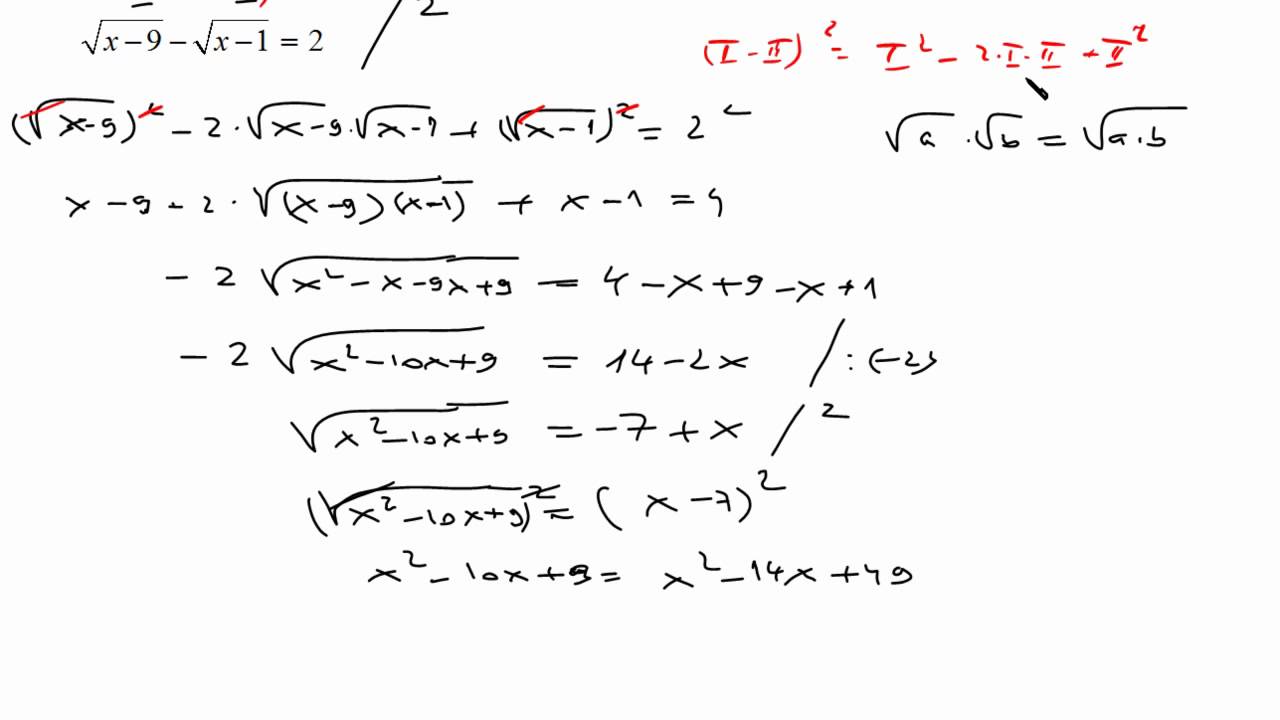 √(x−9) − √(x−1) = 2 / 2
(I − II)² = I² − 2·I·II + II²
(√(x−9))² − 2·√(x−9)·√(x−1) + (√(x−1))² = 2²
√a · √b = √(a·b)
x − 9 − 2·√((x−9)(x−1)) + x − 1 = 4
− 2√(x² − x − 9x + 9) = 4 − x + 9 − x + 1
− 2√(x² − 10x + 9) = 14 − 2x / : (−2)
√(x² − 10x + 9) = −7 + x / ²
(√(x² − 10x + 9))² = (x − 7)²
x² − 10x + 9 = x² − 14x + 49